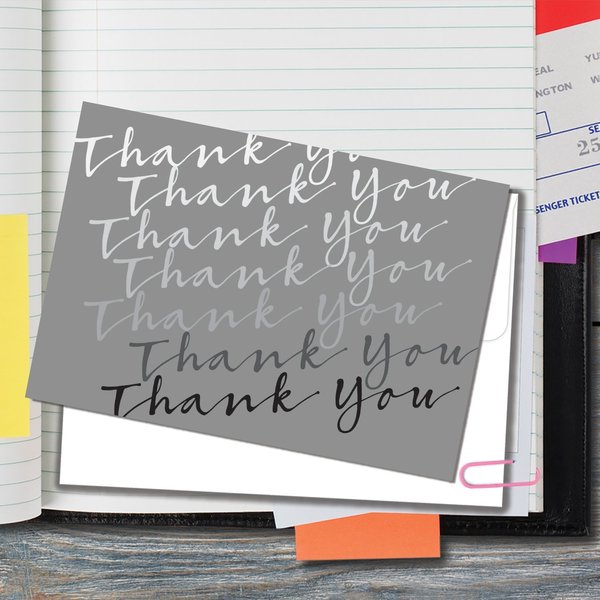 Thank You
Thank You
Thank You
Thank You
Thank You
Thank You
Thank You
SENGER TICKET
25